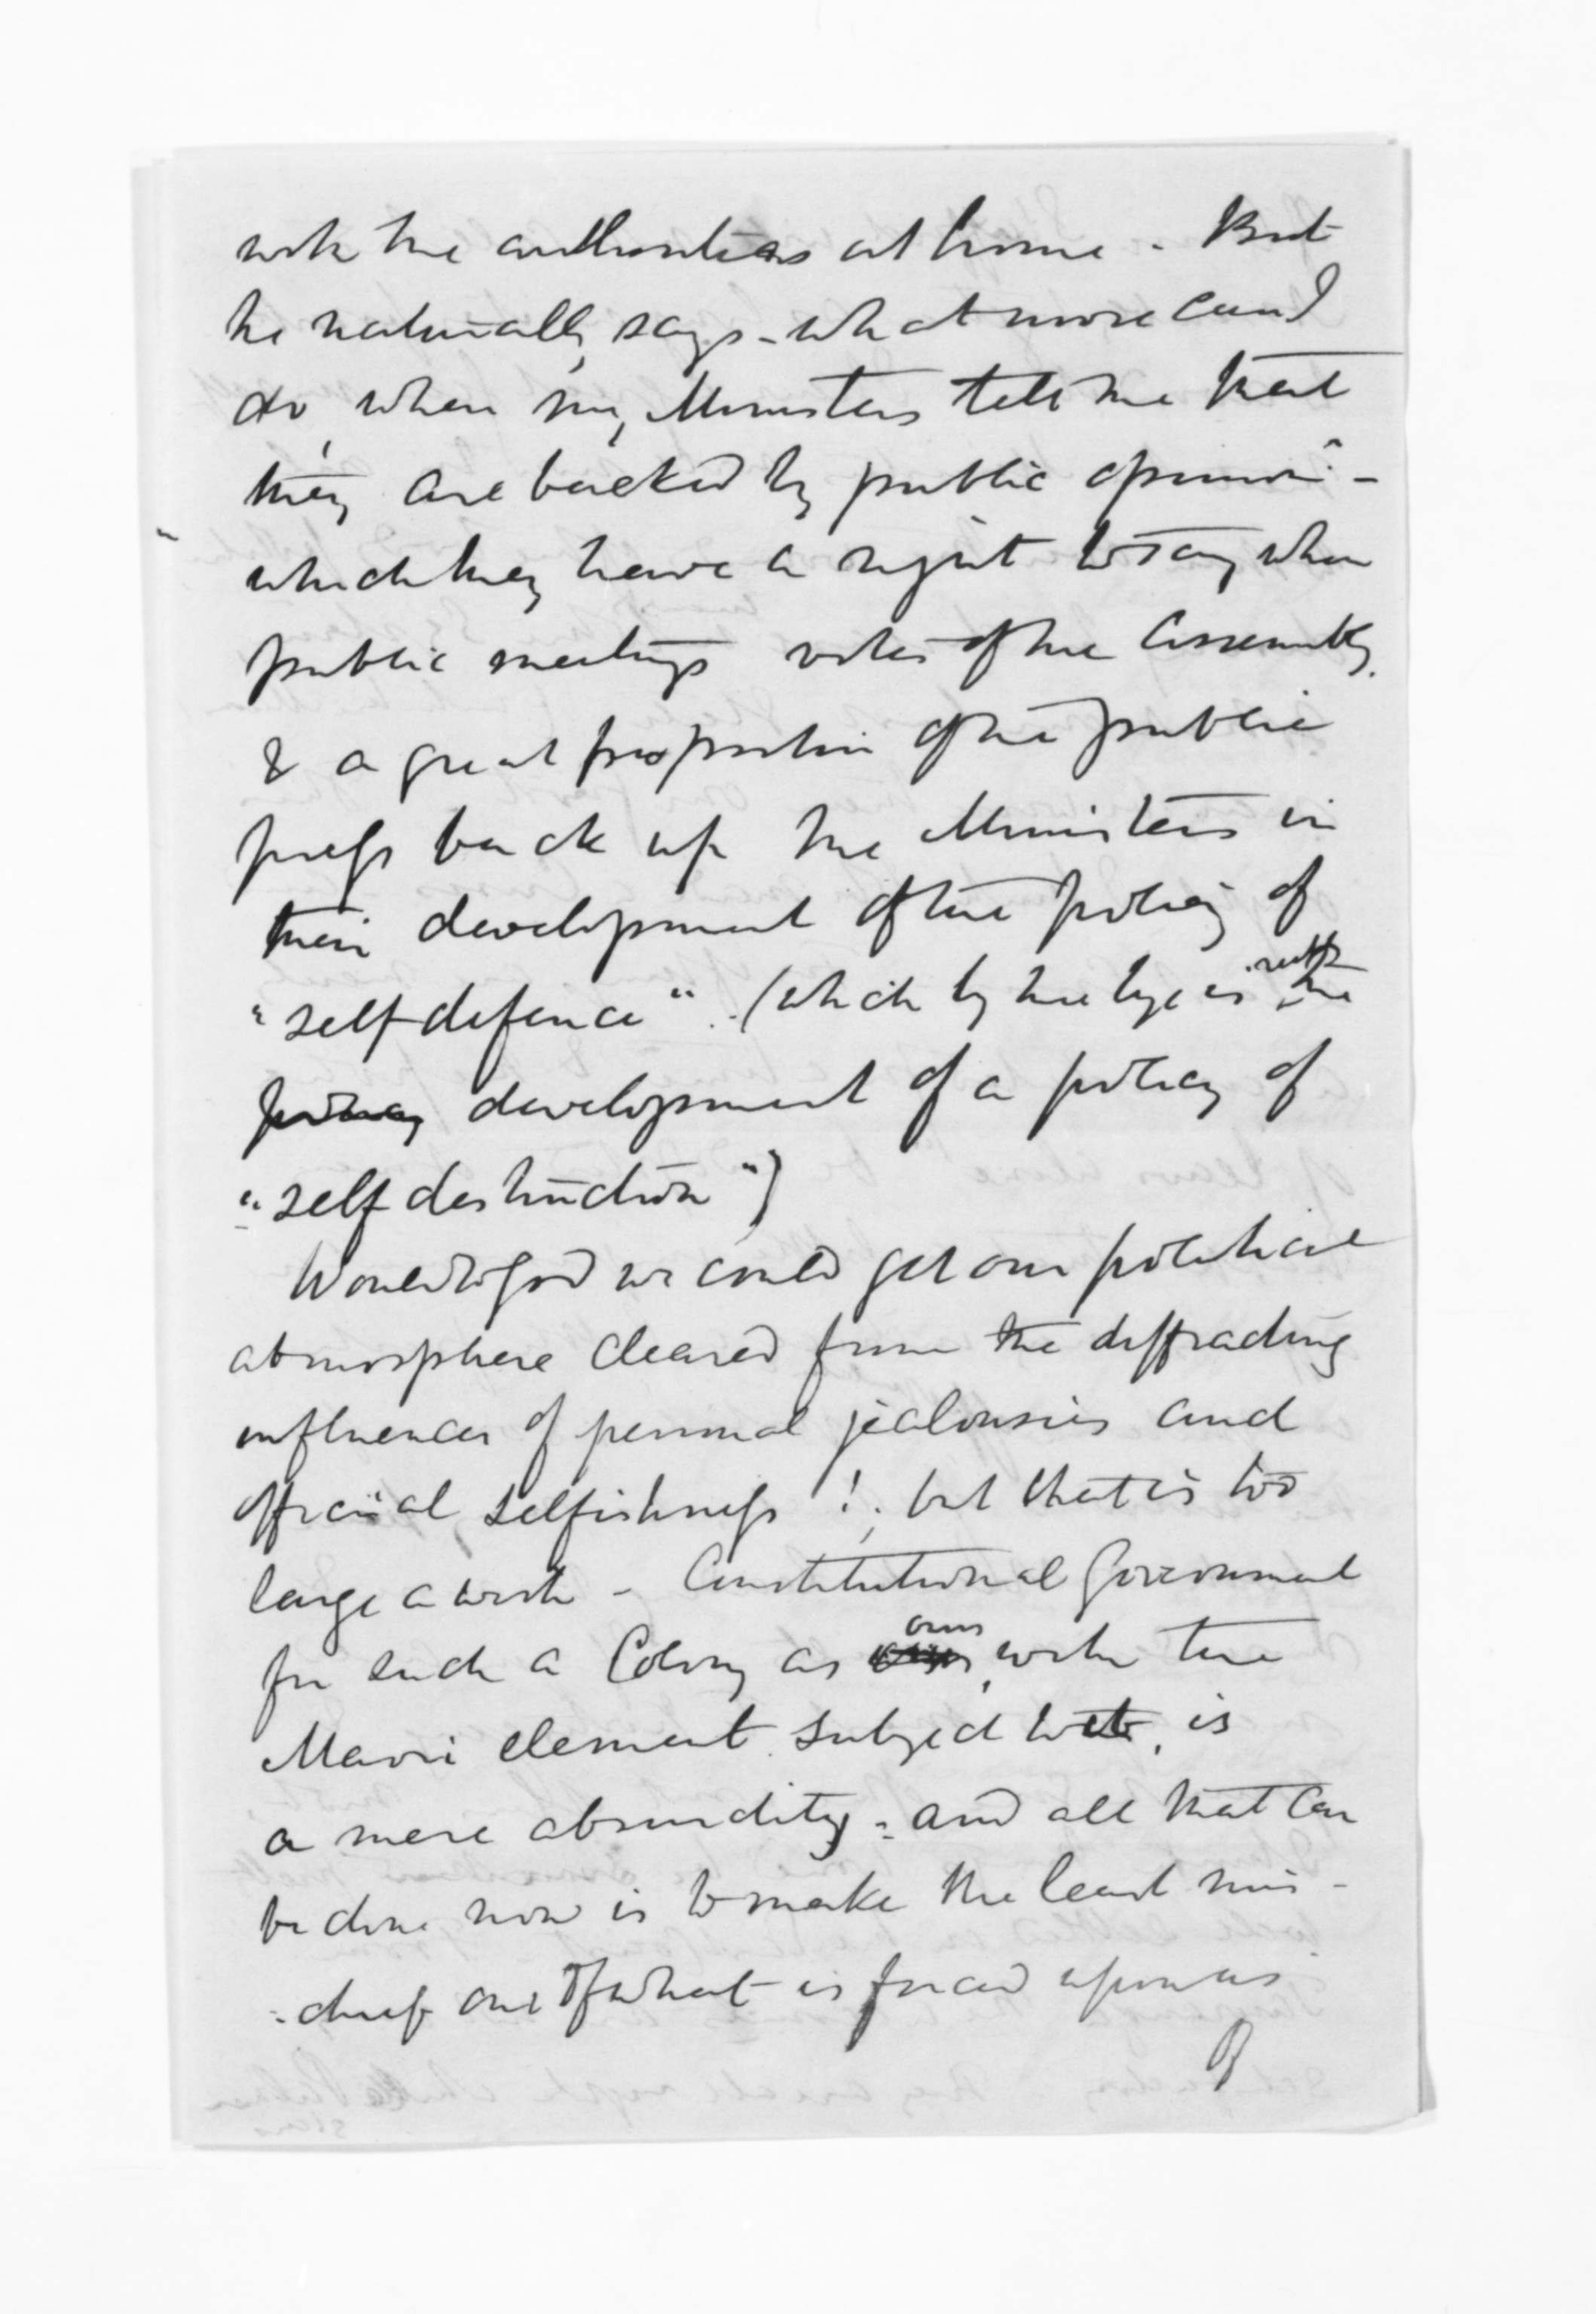 with the authorities at home - But
he naturally says - what more can I
do, when my Ministers tell me that
they are backed by public opinion -
which they have a right to say when
public meetings votes of the Assembly.
& a great proportion of the public
press back up the Ministers in
their development of the policy of
"self defence" (which by the bye is really the
policy development of a policy of
"self destruction")
Would to God we could get our political
atmosphere cleared from the degrading
influences of personal jealousies and
official selfishness ! but that is too
large a wish - Constitutional Government
for such a Colony as ours, with the
Maori element subject to it, is
a mere absurdity - and all that can
be done now is to make the least mis-
-chief out of what is forced upon us